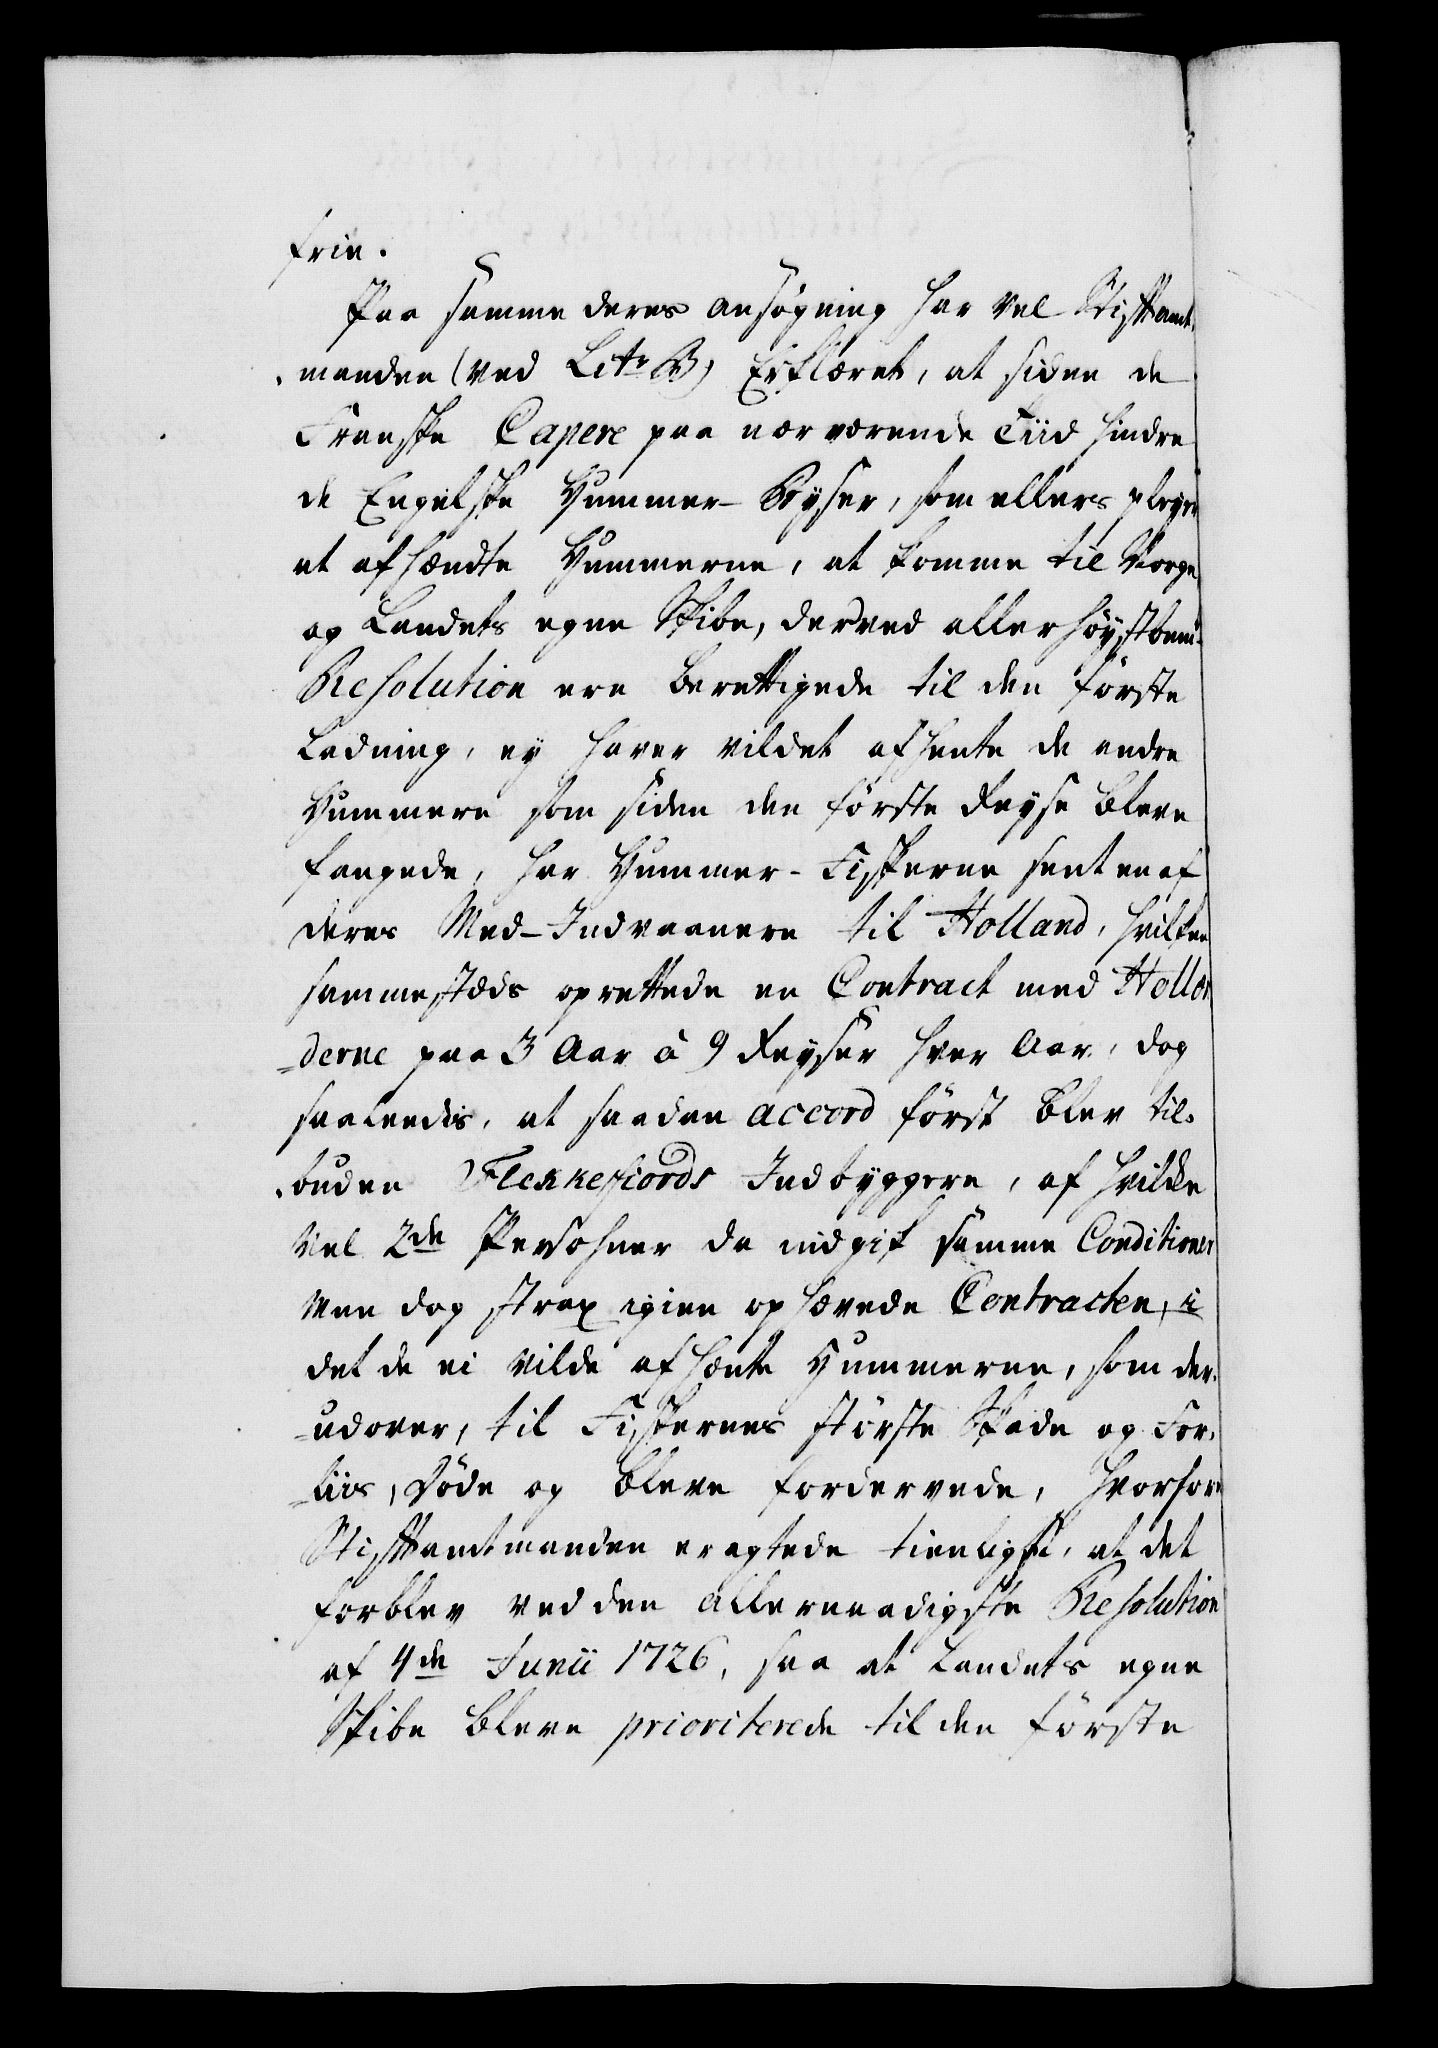 frie.
Paa samme deres ansøgning har vel Stiftamt-
manden (ved Litr B) Erklæret, at siden de
Franske Capere paa nærværende Tiid hindre
de Engelske Hummer-Byser, som ellers pleye
at afhændte Hummerne, at komme til Norge
og Landets egne Skibe, der ved allerhøystbem-
Resolution ere berettigede til den første
Ladning, ey haver vildet afhente de andre
Hummere som siden den første Reyse bleve
fangede, har Hummer-Fiskerne sent en af
deres Med-Indvaanere til Holland, hvilken
sammestæds oprettede en Contract med Hollæn
-derne paa 3 Aar à 9 Reyser hver Aar, dog
saaledis, at saadan accord først blev til-
buden Flekkefiords Indbyggere, af hvilke
vel 2de Persohner da indgik samme Conditioner
Men dog strax igien ophævede Contracten, i
det de ei vilde afhænte Hummerne, som der-
-udover, til Fiskernes største Skade og For-
-liis, døde og bleve fordervede, hvorfore
Stiftamtmanden eragtede tienligst, at det
forblev ved den allernaadigste Resolution
af 4de Junii 1726, saa at Landets egne
Skibe bleve prioriterede til den første